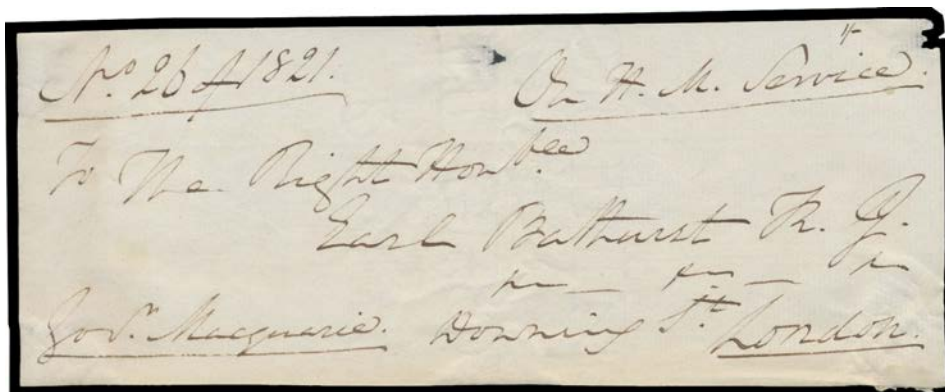 No. 26 of 1821.
On H. M. Service.
To The Right Honble.
Earl Bathurst K. G.
Govr. Macquarie.
Downing St.
London.